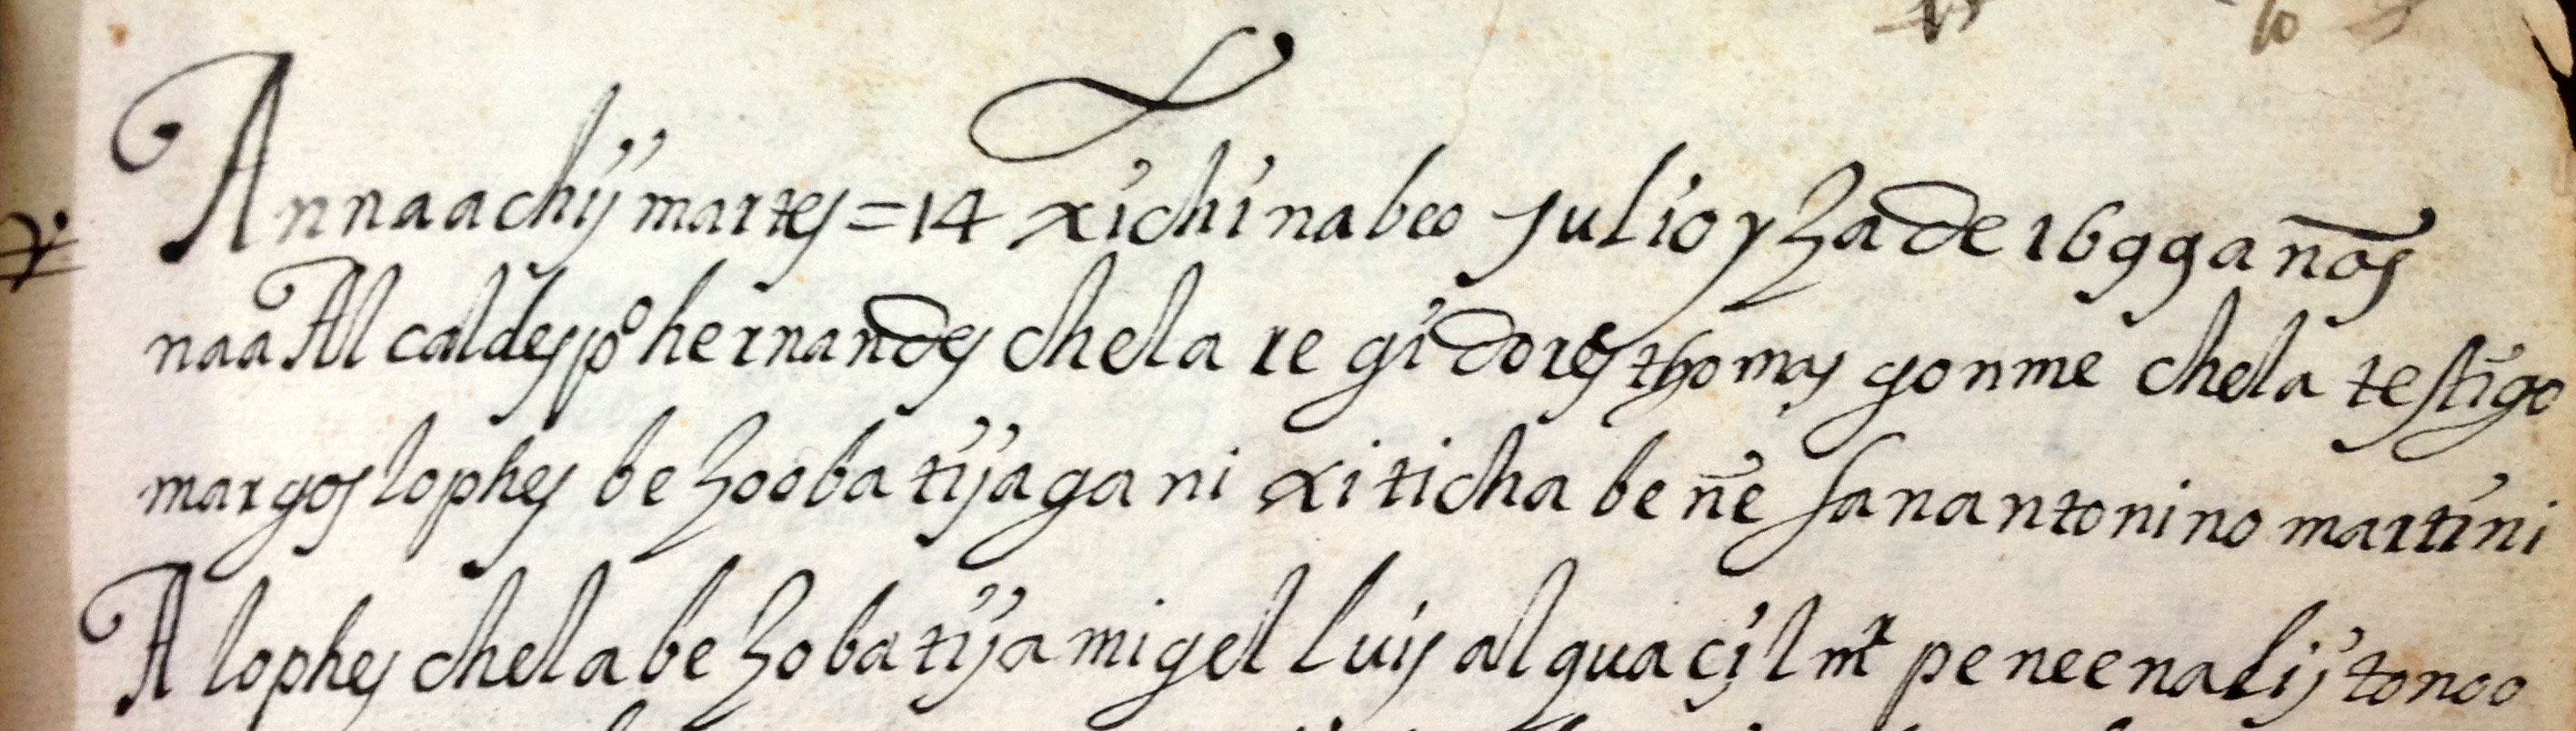 Annaachij martes = 14 xichina beo Julio yza de 1699 años
naa Alcaldes po hernandes chela regidores thomas gonme chela testigo
margos lophes bezooba tija gani xiticha beñe san antonino martini
A lophes chela bezoba tija migel luis alguaçil mr peneenalij tonoo